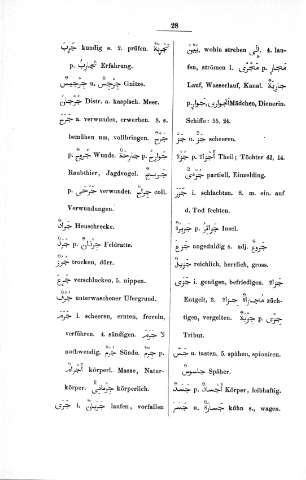 28
جَرَّبَ kundig s. 2. prüfen. تَجْرِبَة
p. تَجَارِب Erfahrung.
Grütze.
Distr. a. kaspisch. Meer.
جَرَحَ a. verwunden, erwerben. 8. s.
bemühen um, vollbringen. جُرْح
p. جُرُوح Wunde. جَارِحَة p. جَوَارِح
Raubthier, Jagdvogel.
p. verwundet. coll.
Verwundungen.
جَرَاد Heuschrecke.
جُرَذ p. جِرْذَان Feldratte.
جُرُز trocken, dürr.
جَرَعَ verschlucken, 5. nippen.
جُرُف unterwaschener Ufergrund.
جَرَمَ i. scheeren, ernten, freveln,
verführen. 4. sündigen. لَا جَرَمَ
nothwendig. جُرْم Sünde. جِرْم p.
أَجْرَام körperl. Masse, Natur-
körper. جِرْمَانِيّ körperlich.
جَرَى i. laufen, vorfallen
wohin streben إِلَى. 4. lau-
fen, strömen l. مَجْرًى p. مَجَارٍ
Lauf, Wasserlauf, Kanal. جَارِيَة
p. جَوَارٍ Mädchen, Dienerin.
Schiffe: 55, 24.
جَزَّ u. scheeren.
جُزْء p. أَجْزَاء Theil; Töchter 42, 14.
partiell, Einzelding.
جَزَرَ i. schlachten. 8. m. ein. auf
d. Tod fechten.
جَزِيرَة p. جَزَائِر Insel.
جَزِعَ ungeduldig s. adj. جَزُوع
جَزِيل reichlich, herrlich, gross.
جَزَى i. genügen, befriedigen. جَزَاء
Entgelt, 2. 3. züch-
tigen, vergelten. جِزْيَة p. جِزًى
Tribut.
جَسَّ u. tasten. 5. spähen, spioniren.
جَاسُوس Späher.
جَسَد p. أَجْسَاد Körper, leibhaftig.
جَسَرَ u. جَسَارَة kühn s., wagen.